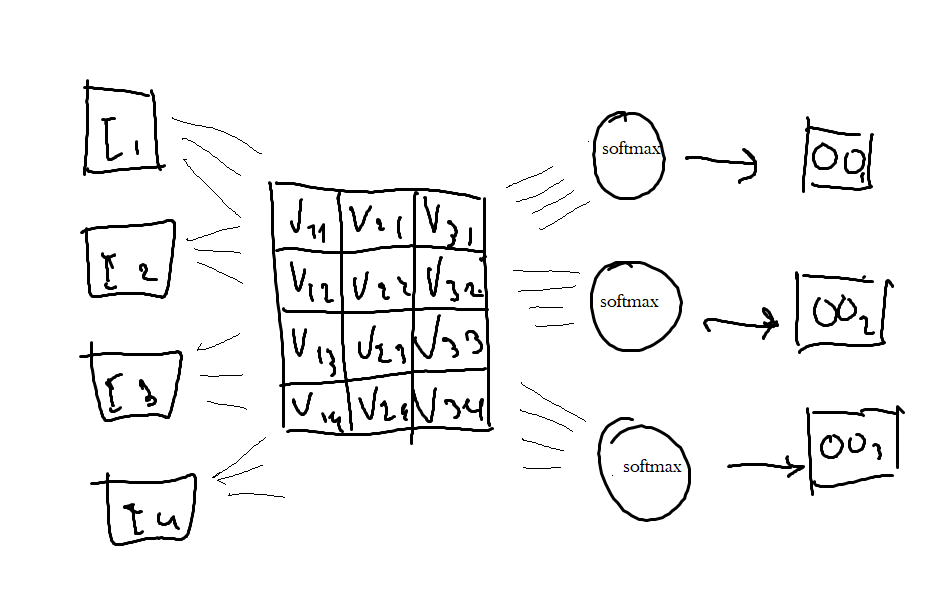 I1
I2
I3
I4
V11 V21 V31
V12 V22 V32
V13 V23 V33
V14 V24 V34
softmax
OO1
softmax
OO2
softmax
OO3